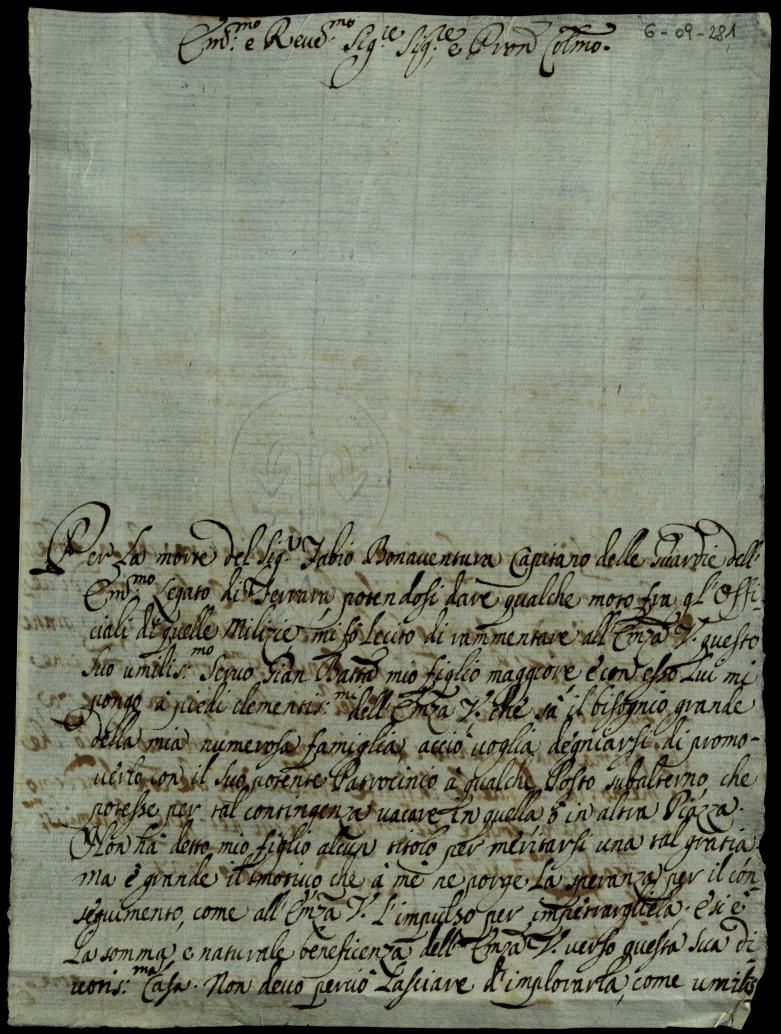 6-09-281
Em.mo e Reud.mo Sig.re Sig.re e Pron Colmo.
Per la morte del Sig.r Fabio Bonaventura Capitano delle Guardie dell'
Em.mo Legato di Ferrara, potendosi dare qualche moto fra gl'Offi-
ciali di quelle Milizie, mi fo lecito di rammentare all'Emza V. questo
suo umilis.mo Seruo Gian Batta mio figlio maggiore e con esso lui mi
pongo a piedi clementis.mi dell'Emza V. che sà il bisogno grande
della mia numerosa famiglia, acciò voglia degniarsi di promo-
verlo con il suo potente Patrocinio à qualche Posto subalterno, che
potesse per tal contingenza vacare in quella ò in altra Piazza.
Non hà detto mio figlio alcun titolo per meritarsi una tal gratia
ma è grande il motivo che à me ne porge la speranza per il con-
seguimento, come all'Emza V. l'impulso per impetrargliela. e si è
la somma e naturale beneficenza dell'Emza V. verso questa sua di-
uotis.ma Casa. Non deuo perciò lasciare d'implorarla, come umilis